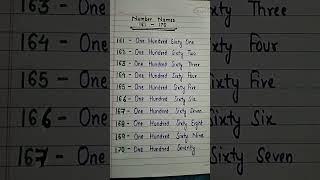 Number Names
161 - 170
161 - One Hundred Sixty One
162 - One Hundred Sixty Two
163 - One Hundred Sixty Three
164 - One Hundred Sixty Four
165 - One Hundred Sixty Five
166 - One Hundred Sixty Six
167 - One Hundred Sixty Seven
168 - One Hundred Sixty Eight
169 - One Hundred Sixty Nine
170 - One Hundred Seventy
163 - One
Sixty Three
164 - One
Sixty Four
165 - One
Sixty Five
166 - One
Sixty Six
167 - One
Sixty Seven